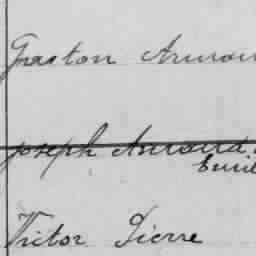 Gaston Arman
Joseph Armand
Emil
Victor Pierre